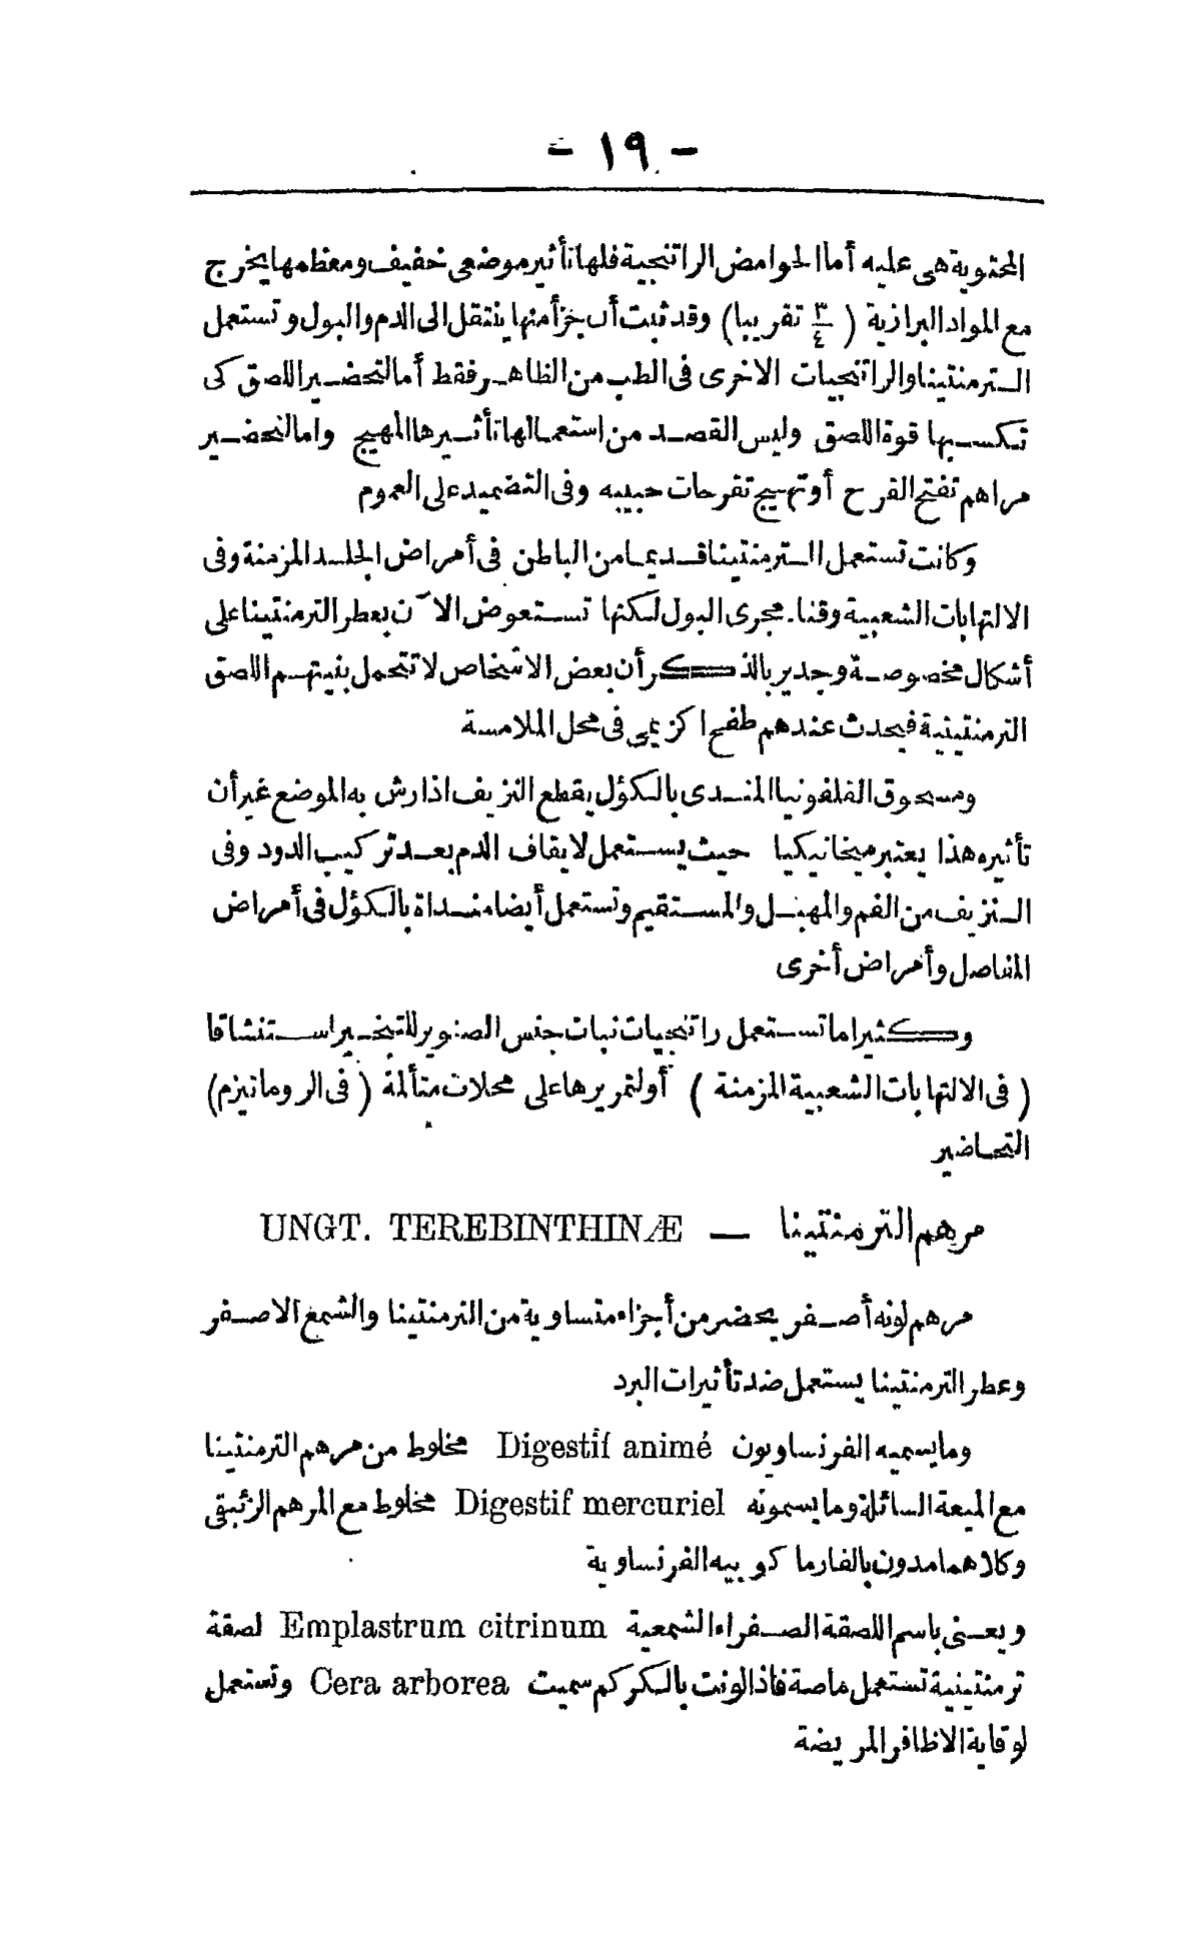 - ١٩ -
المحتوية هى عليه أما الحوامض الراتنجية فلها تأثير موضعى خفيف ومعظمها يخرج
مع المواد البرازية ( ٣/٤ تقريبا ) وقد ثبت أن جزأ منها ينتقل الى الدم والبول وتستعمل
الترمنتينا والراتنجيات الاخرى فى الطب من الظاهر فقط أما لتحضير اللصق كى
تكسبها قوة اللصق وليس القصد من استعمالها تأثيرها المهيج واما لتحضير
مراهم تفتح القرح أو تهييج تقرحات حبيبيه وفى التضميد على العموم
وكانت تستعمل الترمنتينا قديما من الباطن فى أمراض الجلد المزمنة وفى
الالتهابات الشعبية وقنا. مجرى البول لكنها تستعوض الآن بعطر الترمنتينا على
أشكال مخصوصة وجدير بالذكر أن بعض الاشخاص لا تتحمل بنيتهم اللصق
الترمنتينية فيحدث عندهم طفح اكزيمى فى محل الملامسة
ومسحوق القلفونيا المندى بالكؤل يقطع النزيف اذا رش به الموضع غير أن
تأثيره هذا يعتبر ميخانيكيا حيث يستعمل لايقاف الدم بعد تركيب الدود وفى
النزيف من الفم والمهبل والمستقيم وتستعمل أيضا منداة بالكؤل فى أمراض
المفاصل وأمراض أخرى
وكثيرا ما تستعمل راتنجيات نبات جنس الصنوبر للتبخير استنشاقا
( فى الالتهابات الشعبية المزمنة ) أو لتمريرها على محلات متألمة ( فى الروماتيزم)
التحاضير
مرهم الترمنتينا — UNGT. TEREBINTHINÆ
مرهم لونه أصفر يحضر من أجزاء متساوية من الترمنتينا والشمع الاصفر
وعطر الترمنتينا يستعمل ضد تأثيرات البرد
وما يسميه الفرنساويون Digestif animé مخلوط من مرهم الترمنتينا
مع الميعة السائلة وما يسمونه Digestif mercuriel مخلوط مع المرهم الزئبقى
وكلاهما مدون بالفارماكوبيه الفرنساوية
ويعنى باسم اللصقة الصفراء الشمعية Emplastrum citrinum لصقة
ترمنتينية تستعمل ماصة فاذا لونت بالكركم سميت Cera arborea وتستعمل
لوقاية الاظافر المريضة